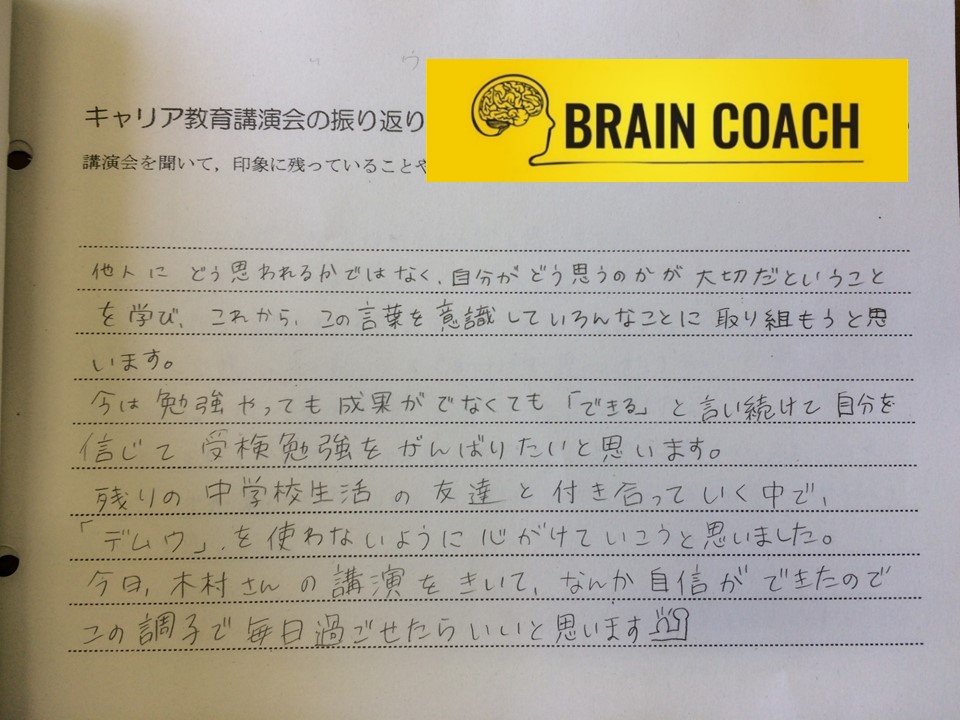 キャリア教育講演会の振り返り
BRAIN COACH
講演会を聞いて，印象に残っていることや
他人に どう思われるかではなく、自分が どう思うのかが 大切だということ
を学び、これから、この言葉を意識していろんなことに取り組もうと思
います。
今は勉強やっても成果がでなくても「できる」と言い続けて自分を
信じて受検勉強をがんばりたいと思います。
残りの中学校生活の友達と付き合っていく中で、
「デムウ」を使わないように心がけていこうと思いました。
今日、木村さんの講演をきいて、なんか自信ができたので
この調子で毎日過ごせたらいいと思います